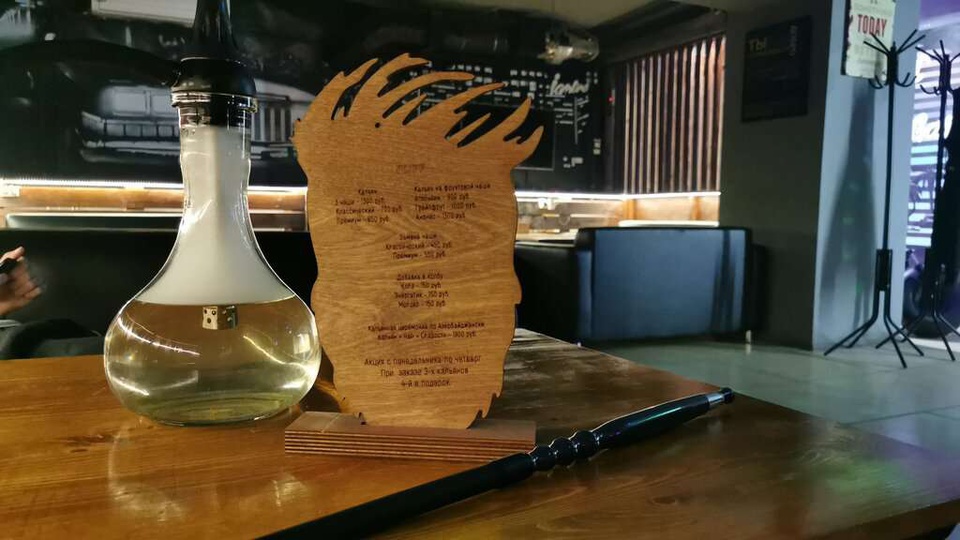 Кальян
1 чаша - 1300 руб.
Классический - 700 руб.
Премиум - 850 руб.
Кальян на фруктовой чаше
Апельсин - 900 руб.
Грейпфрут - 1000 руб.
Ананас - 1500 руб.
Замена чаши
Классический - 400 руб.
Премиум - 500 руб.
Добавка в колбу
Кола - 150 руб.
Энергетик - 150 руб.
Молоко - 150 руб.
Кальянная церемония по Азербайджански
кальян + чай + сладости - 1900 руб.
Акция с понедельника по четверг
При заказе 3-х кальянов
4-й в подарок
ТЫ
TODAY